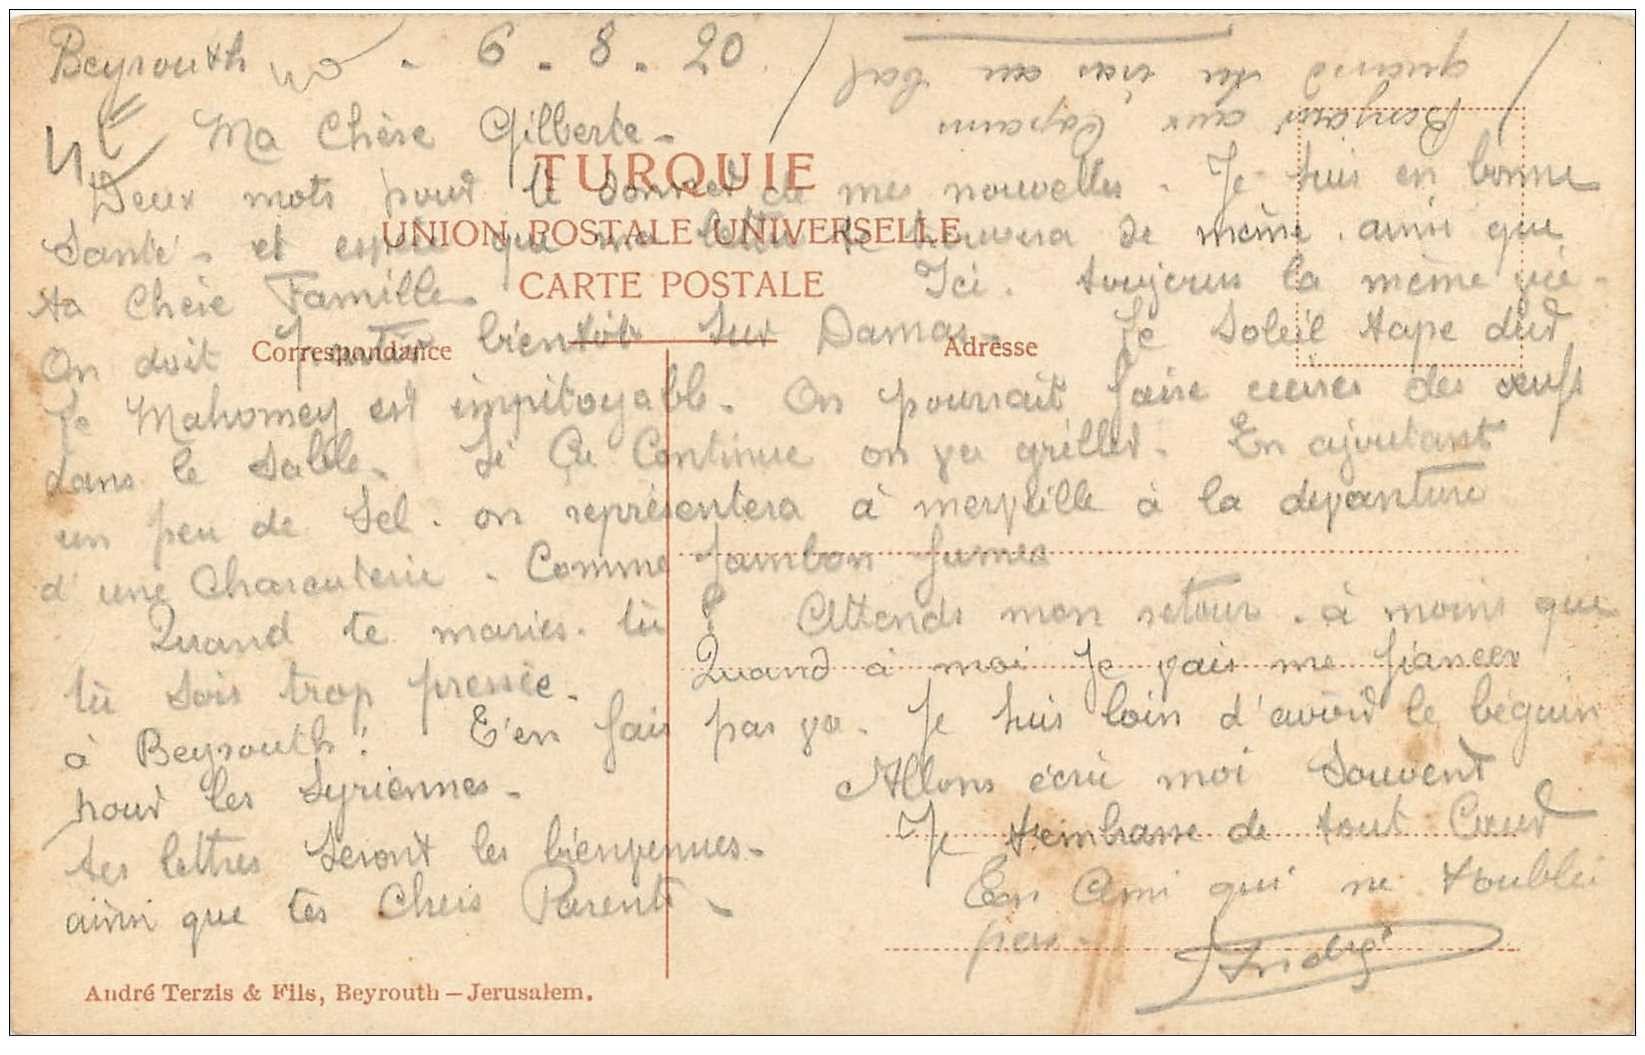 Beyrouth - 6 - 8 - 20
Ma Chère Gilberte -
TURQUIE
Deux mots pour te donner de mes nouvelles. Je suis en bonne
UNION POSTALE UNIVERSELLE
Santé - et espère que ma lettre te trouvera de même. ainsi que
CARTE POSTALE
ta Chère Famille - Ici. toujours la même vie -
Correspondance
Adresse
On doit partir bientôt sur Damas - Le Soleil tape dur
Le Mahomey est impitoyable - On pourrait faire cuire des oeufs
dans le Sable - Si Ça Continue on va griller. En ajoutant
un peu de Sel. on représentera à merveille à la devanture
d'une Charcuterie. Comme Jambon fumer
Quand te maries-tu ? Attends mon retour. à moins que
tu sois trop pressée. Quand à moi Je vais me fiancer
à Beyrouth! T'en fais pas va. Je suis loin d'avoir le béguin
pour les Syriennes - Allons écris moi Souvent
tes lettres Seront les bienvenues - Je t'embrasse de tout Coeur
ainsi que tes Chers Parents - Ton Ami qui ne t'oublie
pas -
André Terzis & Fils, Beyrouth — Jerusalem.